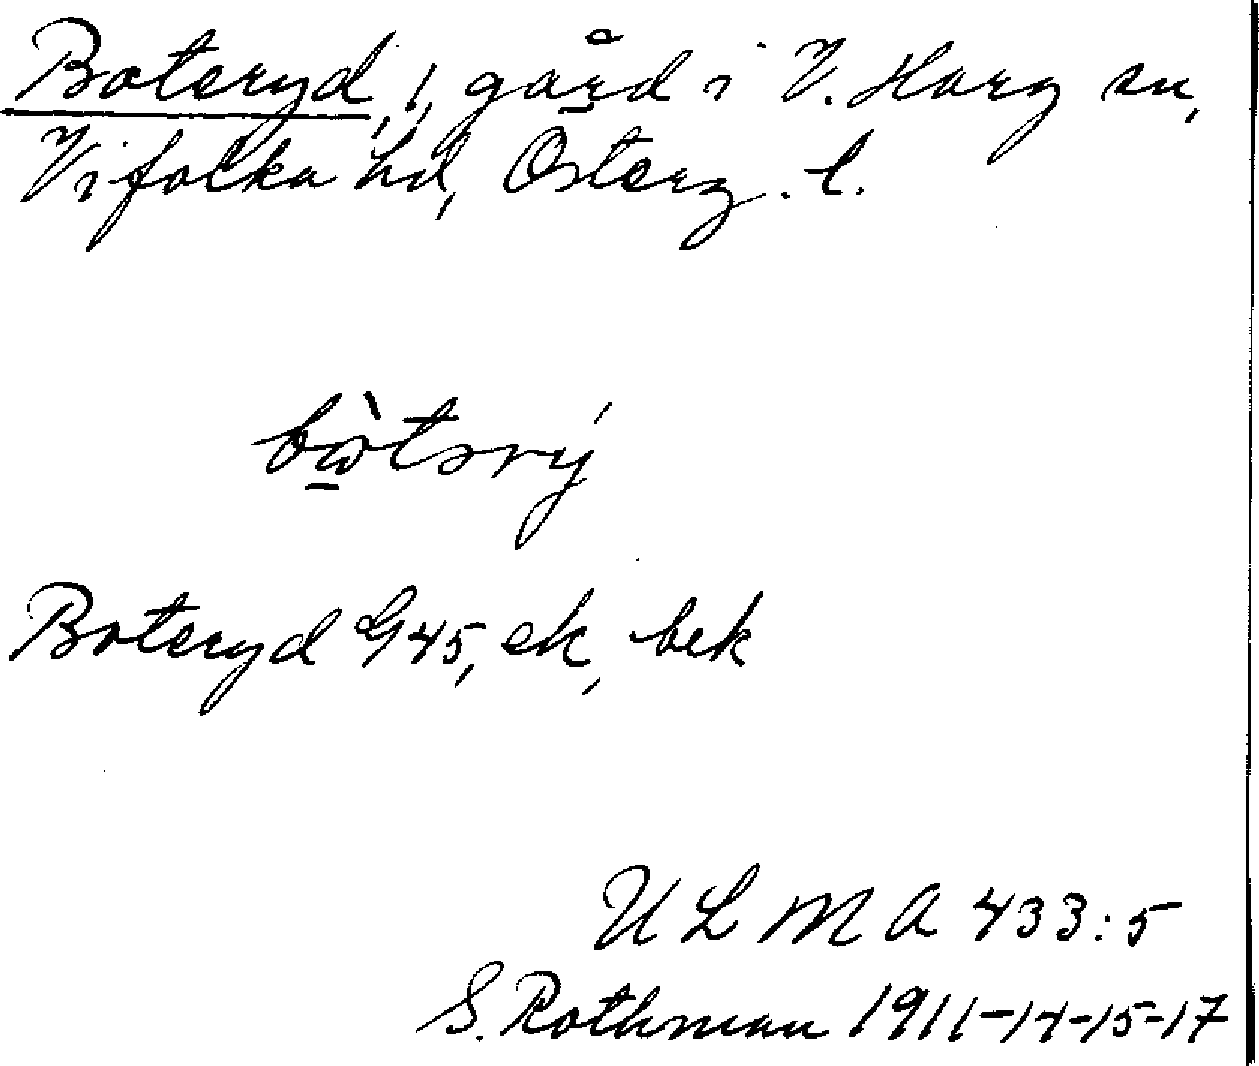 Boteryd, 1, gård i V. Harg sn,
Vifolka hd, Österg. l.
bὼtsrý
Boteryd G45, ek, bek
ULMA 433:5
S. Rothman 1911-14-15-17